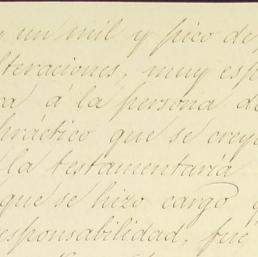 , un mil y pico de
lteraciones, muy esp
ra á la persona de
práctico que se creyó
la testamentaría
que se hizo cargo
esponsabilidad, fue